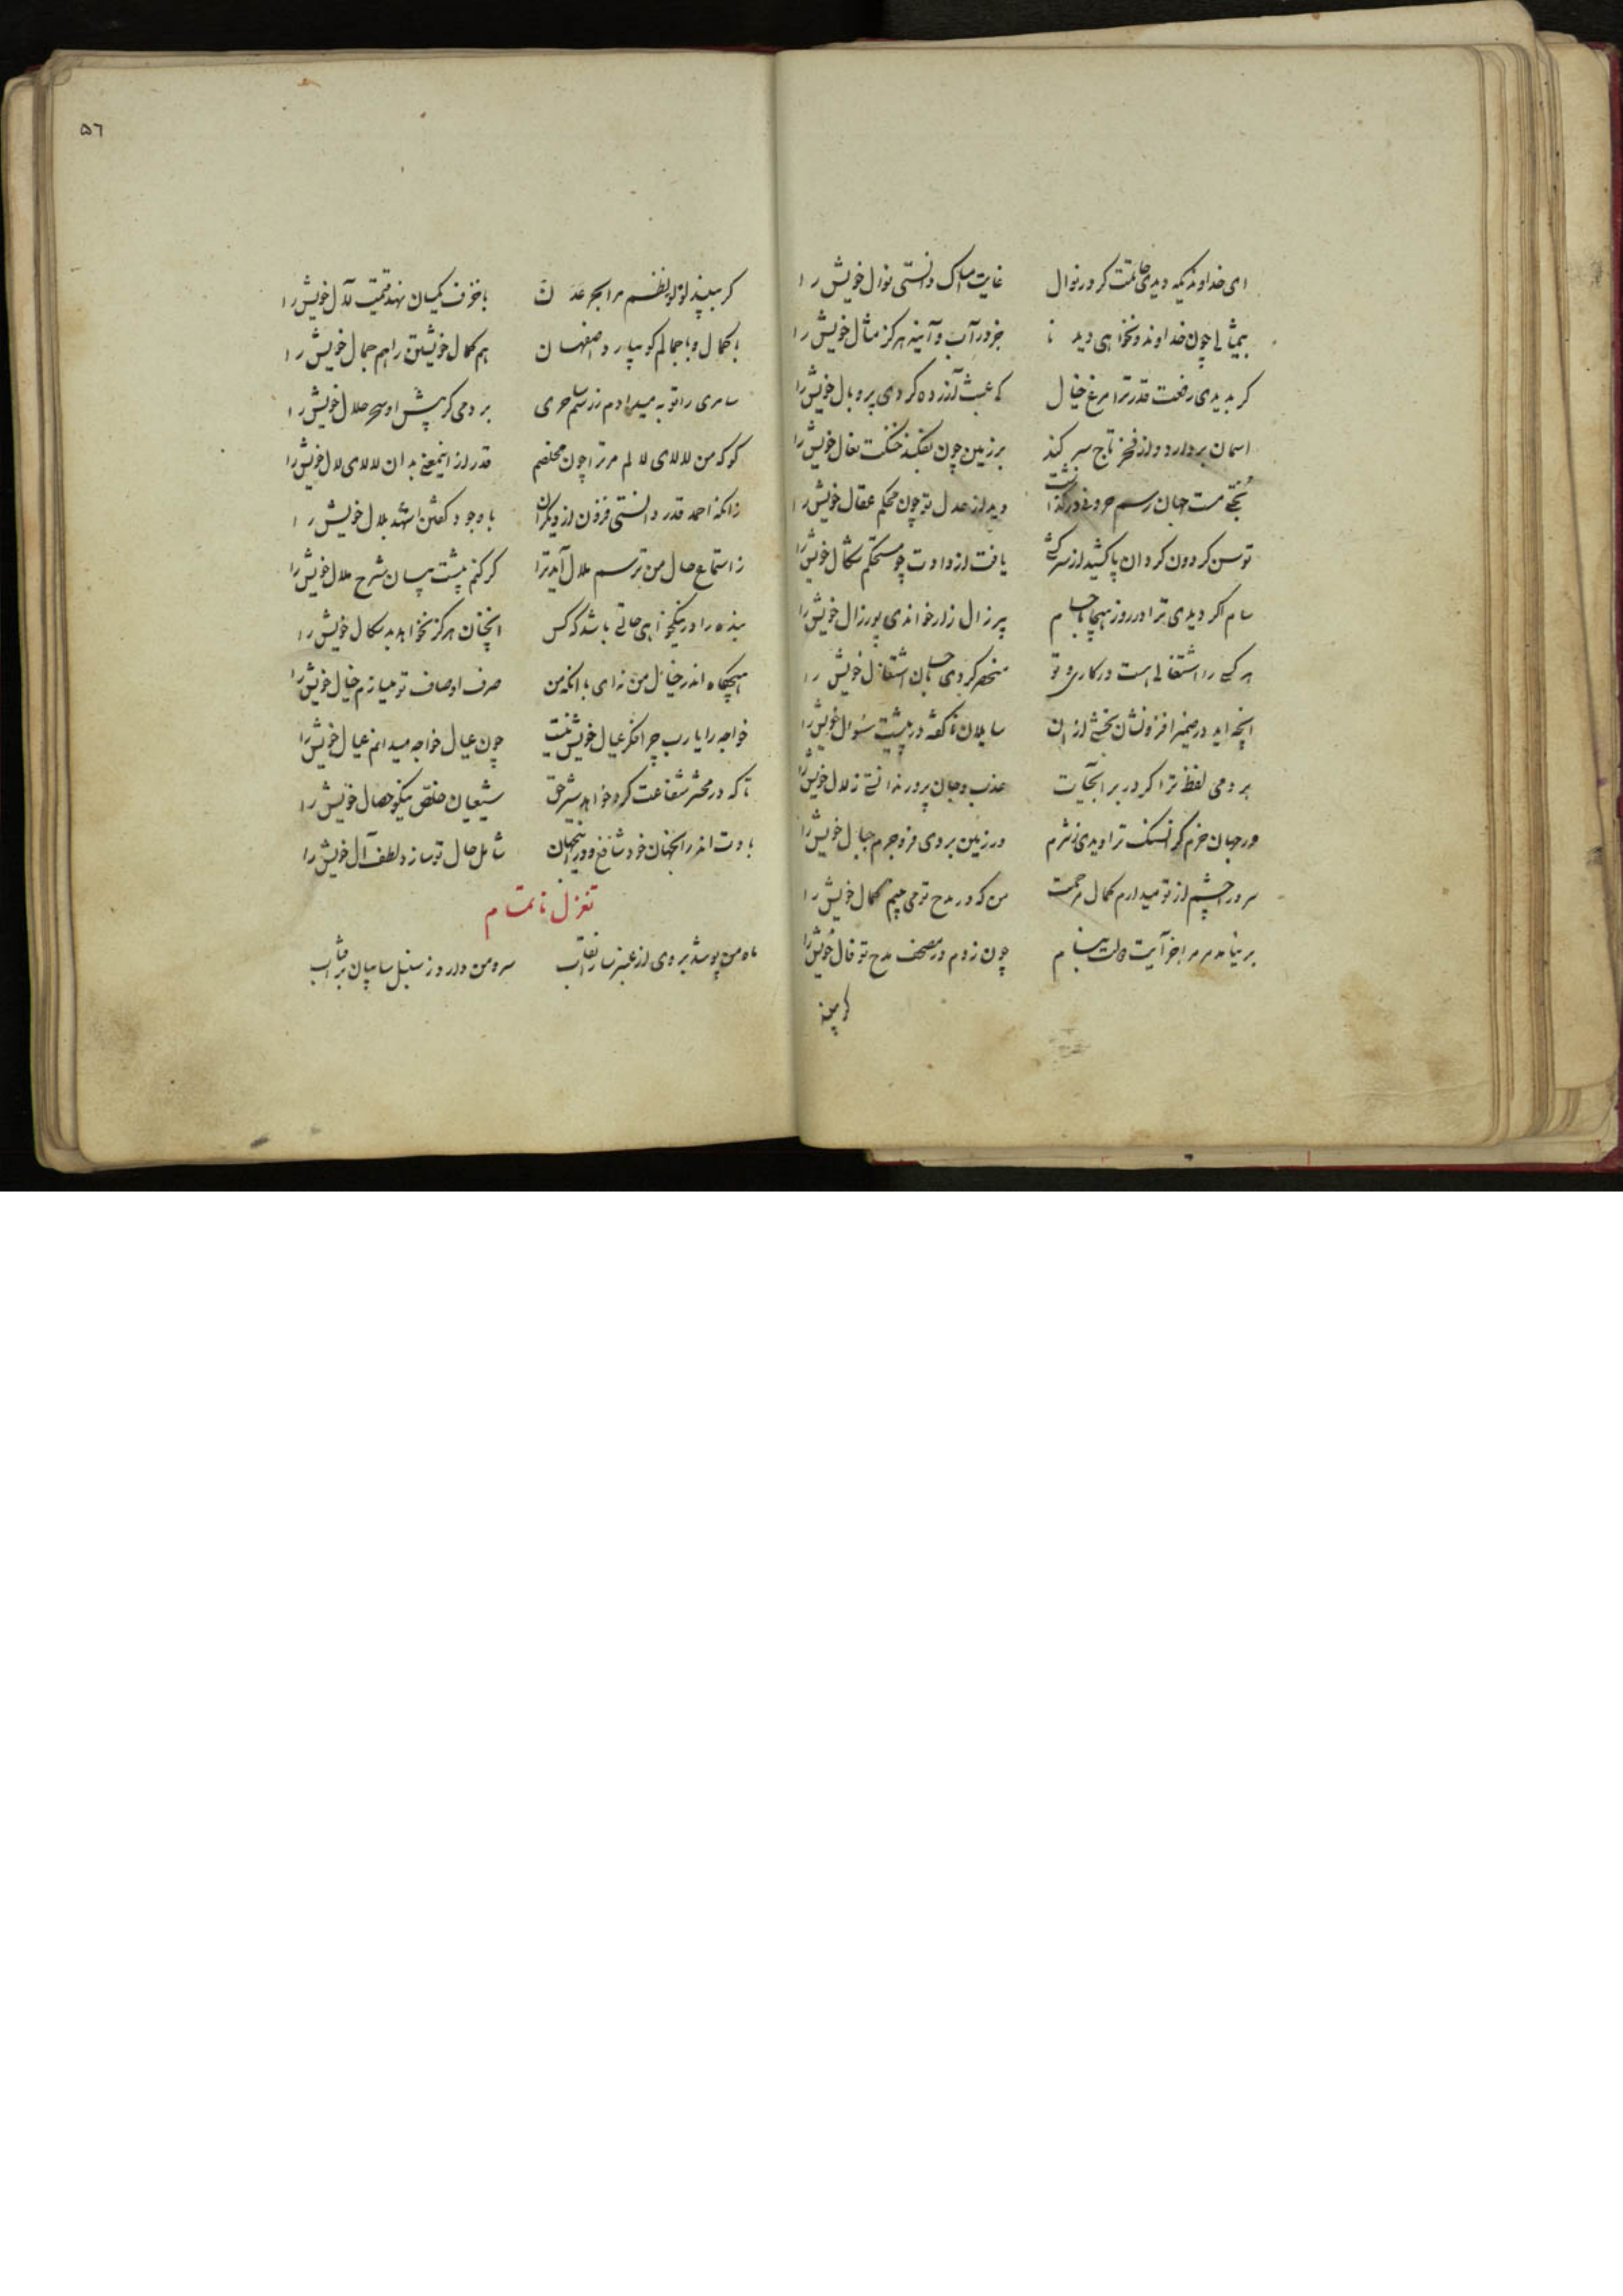 ای خداوندیکه دیدی حاتمت گر در نوال غایت امساک دانستی نوال خویش را
بیمثالی چون خداوند و نخواهی دید تا جز در آب و آینه هرگز مثال خویش را
گر بدیدی رفعت قدر ترا مرغ خیال کی عبث آزرده کردی پر و بال خویش را
اسمان بردارد و از فخر تاج سر کند بر زمین چون بفکند خنگت نعال خویش را
بختی مست جهان رسم حرونی در گذاشت دید از عدل تو چون محکم عقال خویش را
توسن گردون گردان پا کشید از سرکشی یافت از داوت چو مستحکم شکال خویش را
سام اگر دیدی ترا در روز هیجا با حسام پیر زال زار خواندی پور زال خویش را
هر کسی را اشتغالی هست در کاری و تو منحصر کردی باحسان اشتغال خویش را
انچه اید در ضمیر افزونشان بخشی از ان سایلان ناگفته در پیشت سئوال خویش را
بردمی لفظ ترا گر در بر آبحیات عذب و جان پرور ندانستی زلال خویش را
ور جهان حزم گرانسنگ ترا دیدی ز شرم در زمین بردی فرو جرم جبال خویش را
سرورا چشم از تو میدارم کمال مرحمت من که در مدح تو می بینم کمال خویش را
بر نیامد مر مرا جز آیت دولت بنام چون زدم در مصحف مدح تو فال خویش را
گر ببیند
٥٦
گر ببیند لؤلؤ نظم مرا بحر عدن با خزف یکسان نهد قیمت لآل خویش را
با کمال و با جمالم کو بیارد اصفهان هم کمال خویشتن را هم جمال خویش را
سامری را توبه میدادم ز رسم ساحری بردمی گر پیش او سحر حلال خویش را
گو که من لالای لالم مر ترا چون مخلصم قدر از اینمعنی بدان لالای لال خویش را
زانکه احمد قدر دانستی فزون از دیگران با وجود گفتن اشهد بلال خویش را
ز استماع حال من ترسم ملال آید ترا گر کنم پیشت بیان شرح ملال خویش را
بنده را در نیکخواهی حالتی باشد که کس انچنان هرگز نخواهد بدسگال خویش را
هیچگاه اندر خیال من نه ای با انکه من صرف اوصاف تو میسازم خیال خویش را
خواجه را یا رب چرا فکر عیال خویش نیست چون عیال خواجه میدانم عیال خویش را
تا که در محشر شفاعت کرد خواهد شیر حق شیعیان مخلص نیکو خصال خویش را
بادت اندر انجهان خود شافع و در اینجهان شامل حال تو سازد لطف آل خویش را
تغزل ناتمام
ماه من پوشد بروی از عنبر سارا نقاب سرو من دارد ز سنبل سایبان بر آفتاب